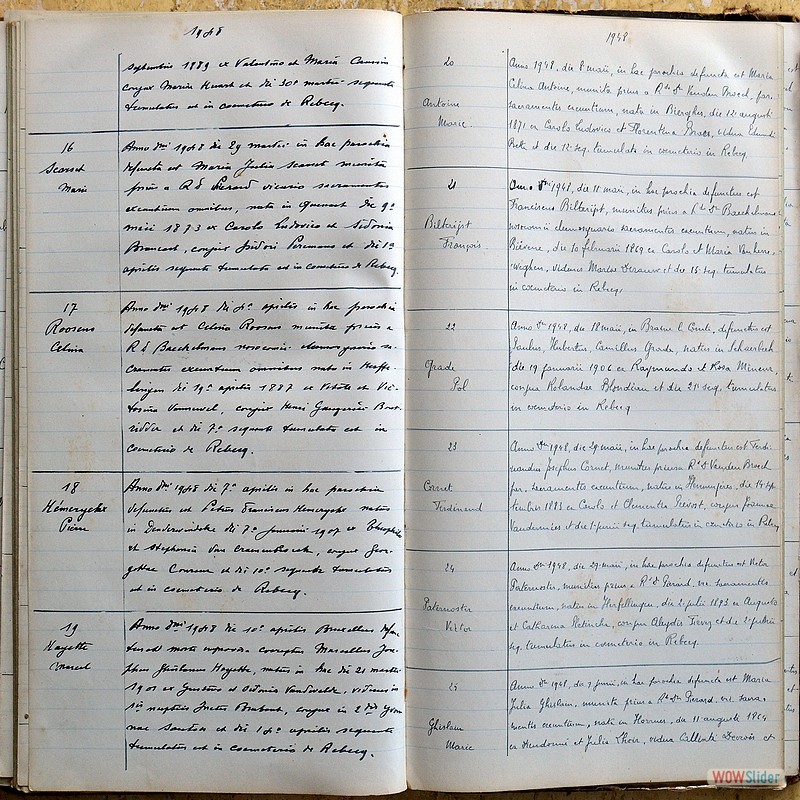 1948
septembris 1889 ex Valentino et Maria
conjux Maria Huart et die 30ª martii sequente
tumulatus est in coemeterio de Rebecq.
16
Scarset
Marie
Anno dni 1948 die 29 martii in hac parochia
defuncta est Maria Julia Scarset munita
prius a R d Pierard vicario sacramentis
exeuntium omnibus, nata in Quenast die 9ª
maii 1873 ex Carolo Ludovico et Sidonia
conjux Isidori Peremans et die 1ª
aprilis sequente tumulata est in coemeterio de Rebecq
17
Roosens
Celina
Anno dni 1948 die 4ª aprilis in hac parochia
defuncta est Celina Roosens munita prius a
R d Baeckelmans nosocomii eleemosynario sa-
cramentis exeuntium omnibus nata in
die 19ª aprilis 1877 ex et Vic-
toria conjux Henri
et die 7ª sequente tumulata est in
coemeterio de Rebecq.
18
Hemeryckx
Pierre
Anno dni 1948 die 7ª aprilis in hac parochia
defunctus est Petrus Franciscus Hemeryckx natus
in Denderwindeke die 7ª Januarii 1907 ex Theophilo
et Stephania Van conjux Geor-
gettae et die 10ª sequente tumulatus
est in coemeterio de Rebecq.
19
Hayette
Marcel
Anno dni 1948 die 10ª aprilis Bruxelles defunc-
tus est morte improvisa correptus Marcellus Jos-
ephus Ghislanus Hayette, natus in hac die 21 martii
1901 ex Gustavo et Sidonia Vandevelde, viduus in
1is nuptiis conjux in 2dis Yvon-
nae et die 14ª aprilis sequente
tumulatus est in coemeterio de Rebecq.
1948
20
Antoine
Marie.
Anno 1948, die 8 maii, in hac prochia defuncta est Maria
Celina Antoine, munita prius a Rdo Do Vanden Broeck, par.
sacramentis exeuntium, nata in Bierghes, die 12 augusti
1871 ex Carolo Ludovico et Florentina Maes, vidua Edmundi
et die 12 seq. tumulata in cometerio in Rebecq
21
Bilterijst
François.
Anno Dni 1948, die 11 maii, in hac prochia defunctus est
Franciscus Bilterijst, munitus prius a Rdo Do Baeckelmans
nosocomii eleemosynario sacramentis exeuntium, natus in
Biévene, die 10 februarii 1869 ex Carolo et Maria Vanhere-
weghen, viduus Mariae et die 15 seq. tumulatus
in cometerio in Rebecq.
22
Grade
Pol
Anno Dni 1948, die 18 maii, in Braine l. Comte, defunctus est
Paulus, Hubertus, Camillus Grade, natus in Schaerbeek
die 19 januarii 1906 ex Raymundo et Rosa Mineur,
conjux Rolandae Blondiau et die 21 seq. tumulatus
in cometerio in Rebecq
23
Cornet
Ferdinand
Anno Dni 1948, die 29 maii, in hac prochia defunctus est Ferdi-
nandus Josephus Cornet, munitus prius a Rdo Do Vanden Broeck
par. sacramentis exeuntium, natus in Hennuyères, die 14 sep-
tembris 1883 ex Carolo et Clementia Prevost, conjux Joannae
et die 1 junii seq. tumulatus in cometerio in Rebecq
24
Paternoster
Victor
Anno Dni 1948, die 29 maii, in hac prochia defunctus est Victor
Paternoster, munitus prius a Rdo Do Pierard, vic. sacramentis
exeuntium, natus in Herfelingen, die 2 julii 1893 ex Augusto
et Catharina conjux Aleydis et die 2 junii
seq. tumulatus in cometerio in Rebecq.
25
Ghislain
Marie
Anno Dni 1948, die 7 junii, in hac prochia defuncta est Maria
Julia Ghislain, munita prius a Rdo Do Pierard, vic. sacra-
mentis exeuntium, nata in Horrues, die 11 augusti 1864
ex et Julia Lhoir, vidua Callixti Devroix et
WOWSlider